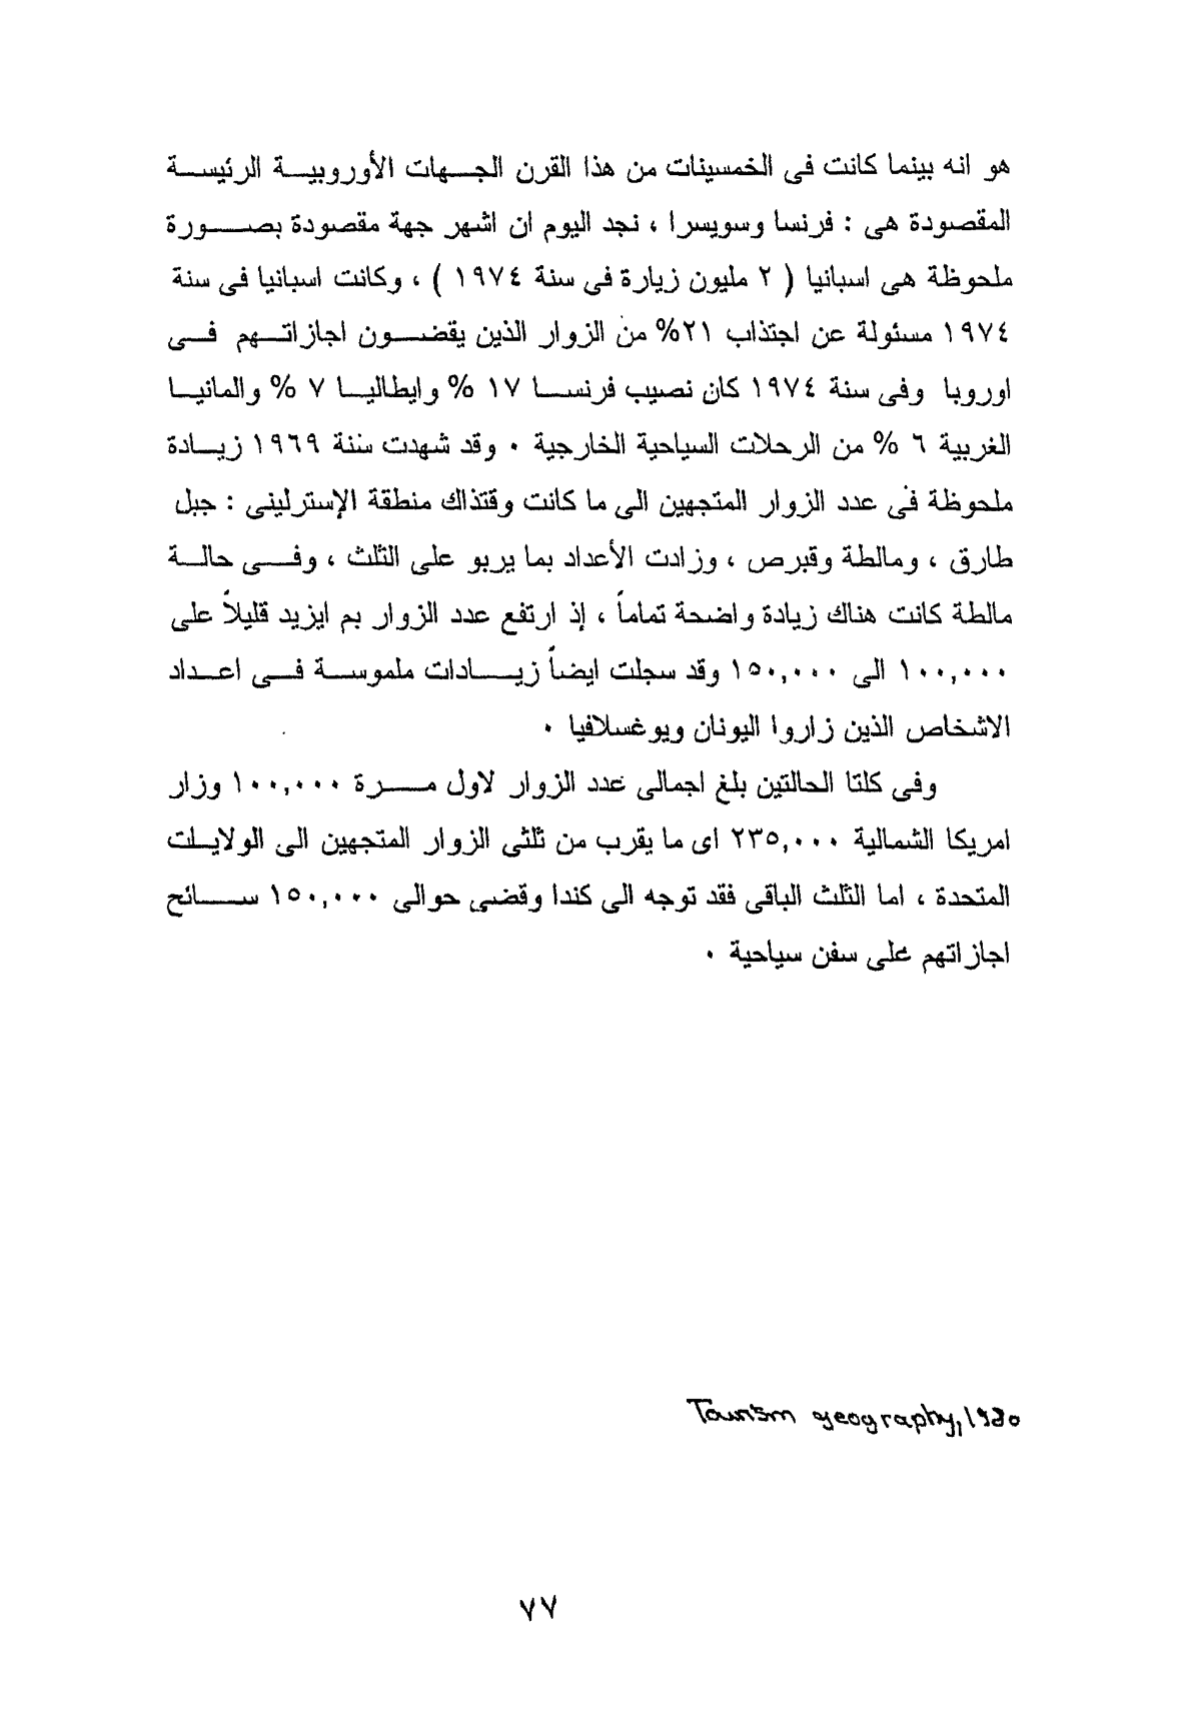 هو انه بينما كانت فى الخمسينات من هذا القرن الجهات الأوروبية الرئيسة
المقصودة هى : فرنسا وسويسرا ، نجد اليوم ان اشهر جهة مقصودة بصورة
ملحوظة هى اسبانيا ( ٢ مليون زيارة فى سنة ١٩٧٤ ) ، وكانت اسبانيا فى سنة
١٩٧٤ مسئولة عن اجتذاب ٢١% من الزوار الذين يقضون اجازاتهم فى
اوروبا وفى سنة ١٩٧٤ كان نصيب فرنسا ١٧ % وايطاليا ٧ % والمانيا
الغربية ٦ % من الرحلات السياحية الخارجية ٠ وقد شهدت سنة ١٩٦٩ زيادة
ملحوظة فى عدد الزوار المتجهين الى ما كانت وقتذاك منطقة الإسترلينى : جبل
طارق ، ومالطة وقبرص ، وزادت الأعداد بما يربو على الثلث ، وفى حالة
مالطة كانت هناك زيادة واضحة تماماً ، إذ ارتفع عدد الزوار بم ايزيد قليلاً على
١٠٠,٠٠٠ الى ١٥٠,٠٠٠ وقد سجلت ايضاً زيادات ملموسة فى اعداد
الاشخاص الذين زاروا اليونان ويوغسلافيا ٠
وفى كلتا الحالتين بلغ اجمالى عدد الزوار لاول مرة ١٠٠,٠٠٠ وزار
امريكا الشمالية ٢٣٥,٠٠٠ اى ما يقرب من ثلثى الزوار المتجهين الى الولايات
المتحدة ، اما الثلث الباقى فقد توجه الى كندا وقضى حوالى ١٥٠,٠٠٠ سائح
اجازاتهم على سفن سياحية ٠
Tourism geography, 1980
٧٧